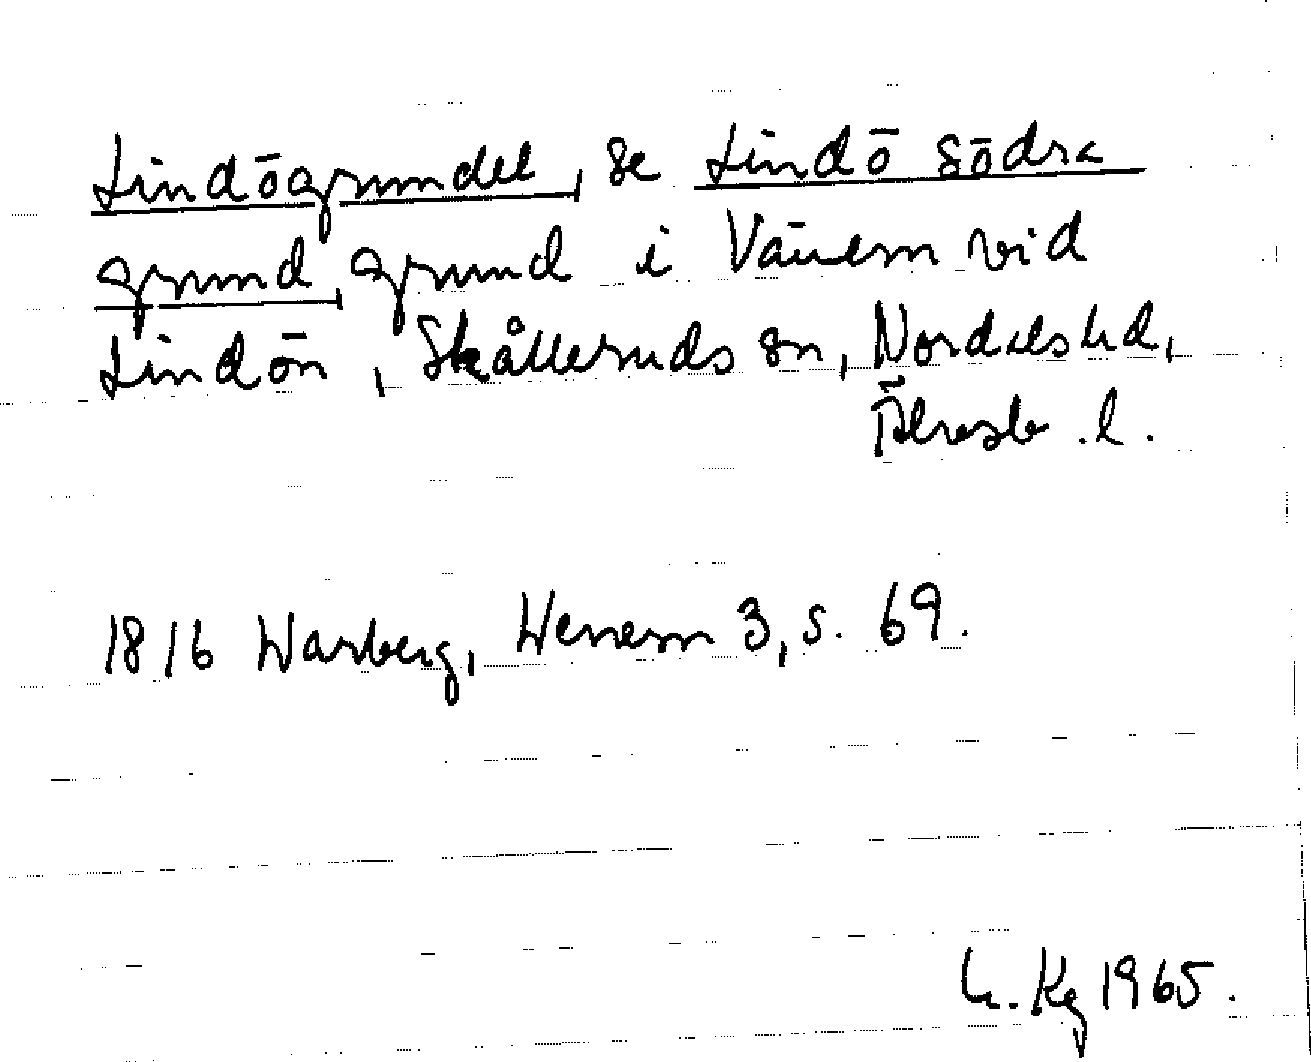 Lindögrundet, se Lindö södra
grund, grund i Vänern vid
Lindön, Skålleruds sn, Nordals hd,
Älvsb. l.
1816 Warberg, Wenern 3, s. 69.
Kg 1965.